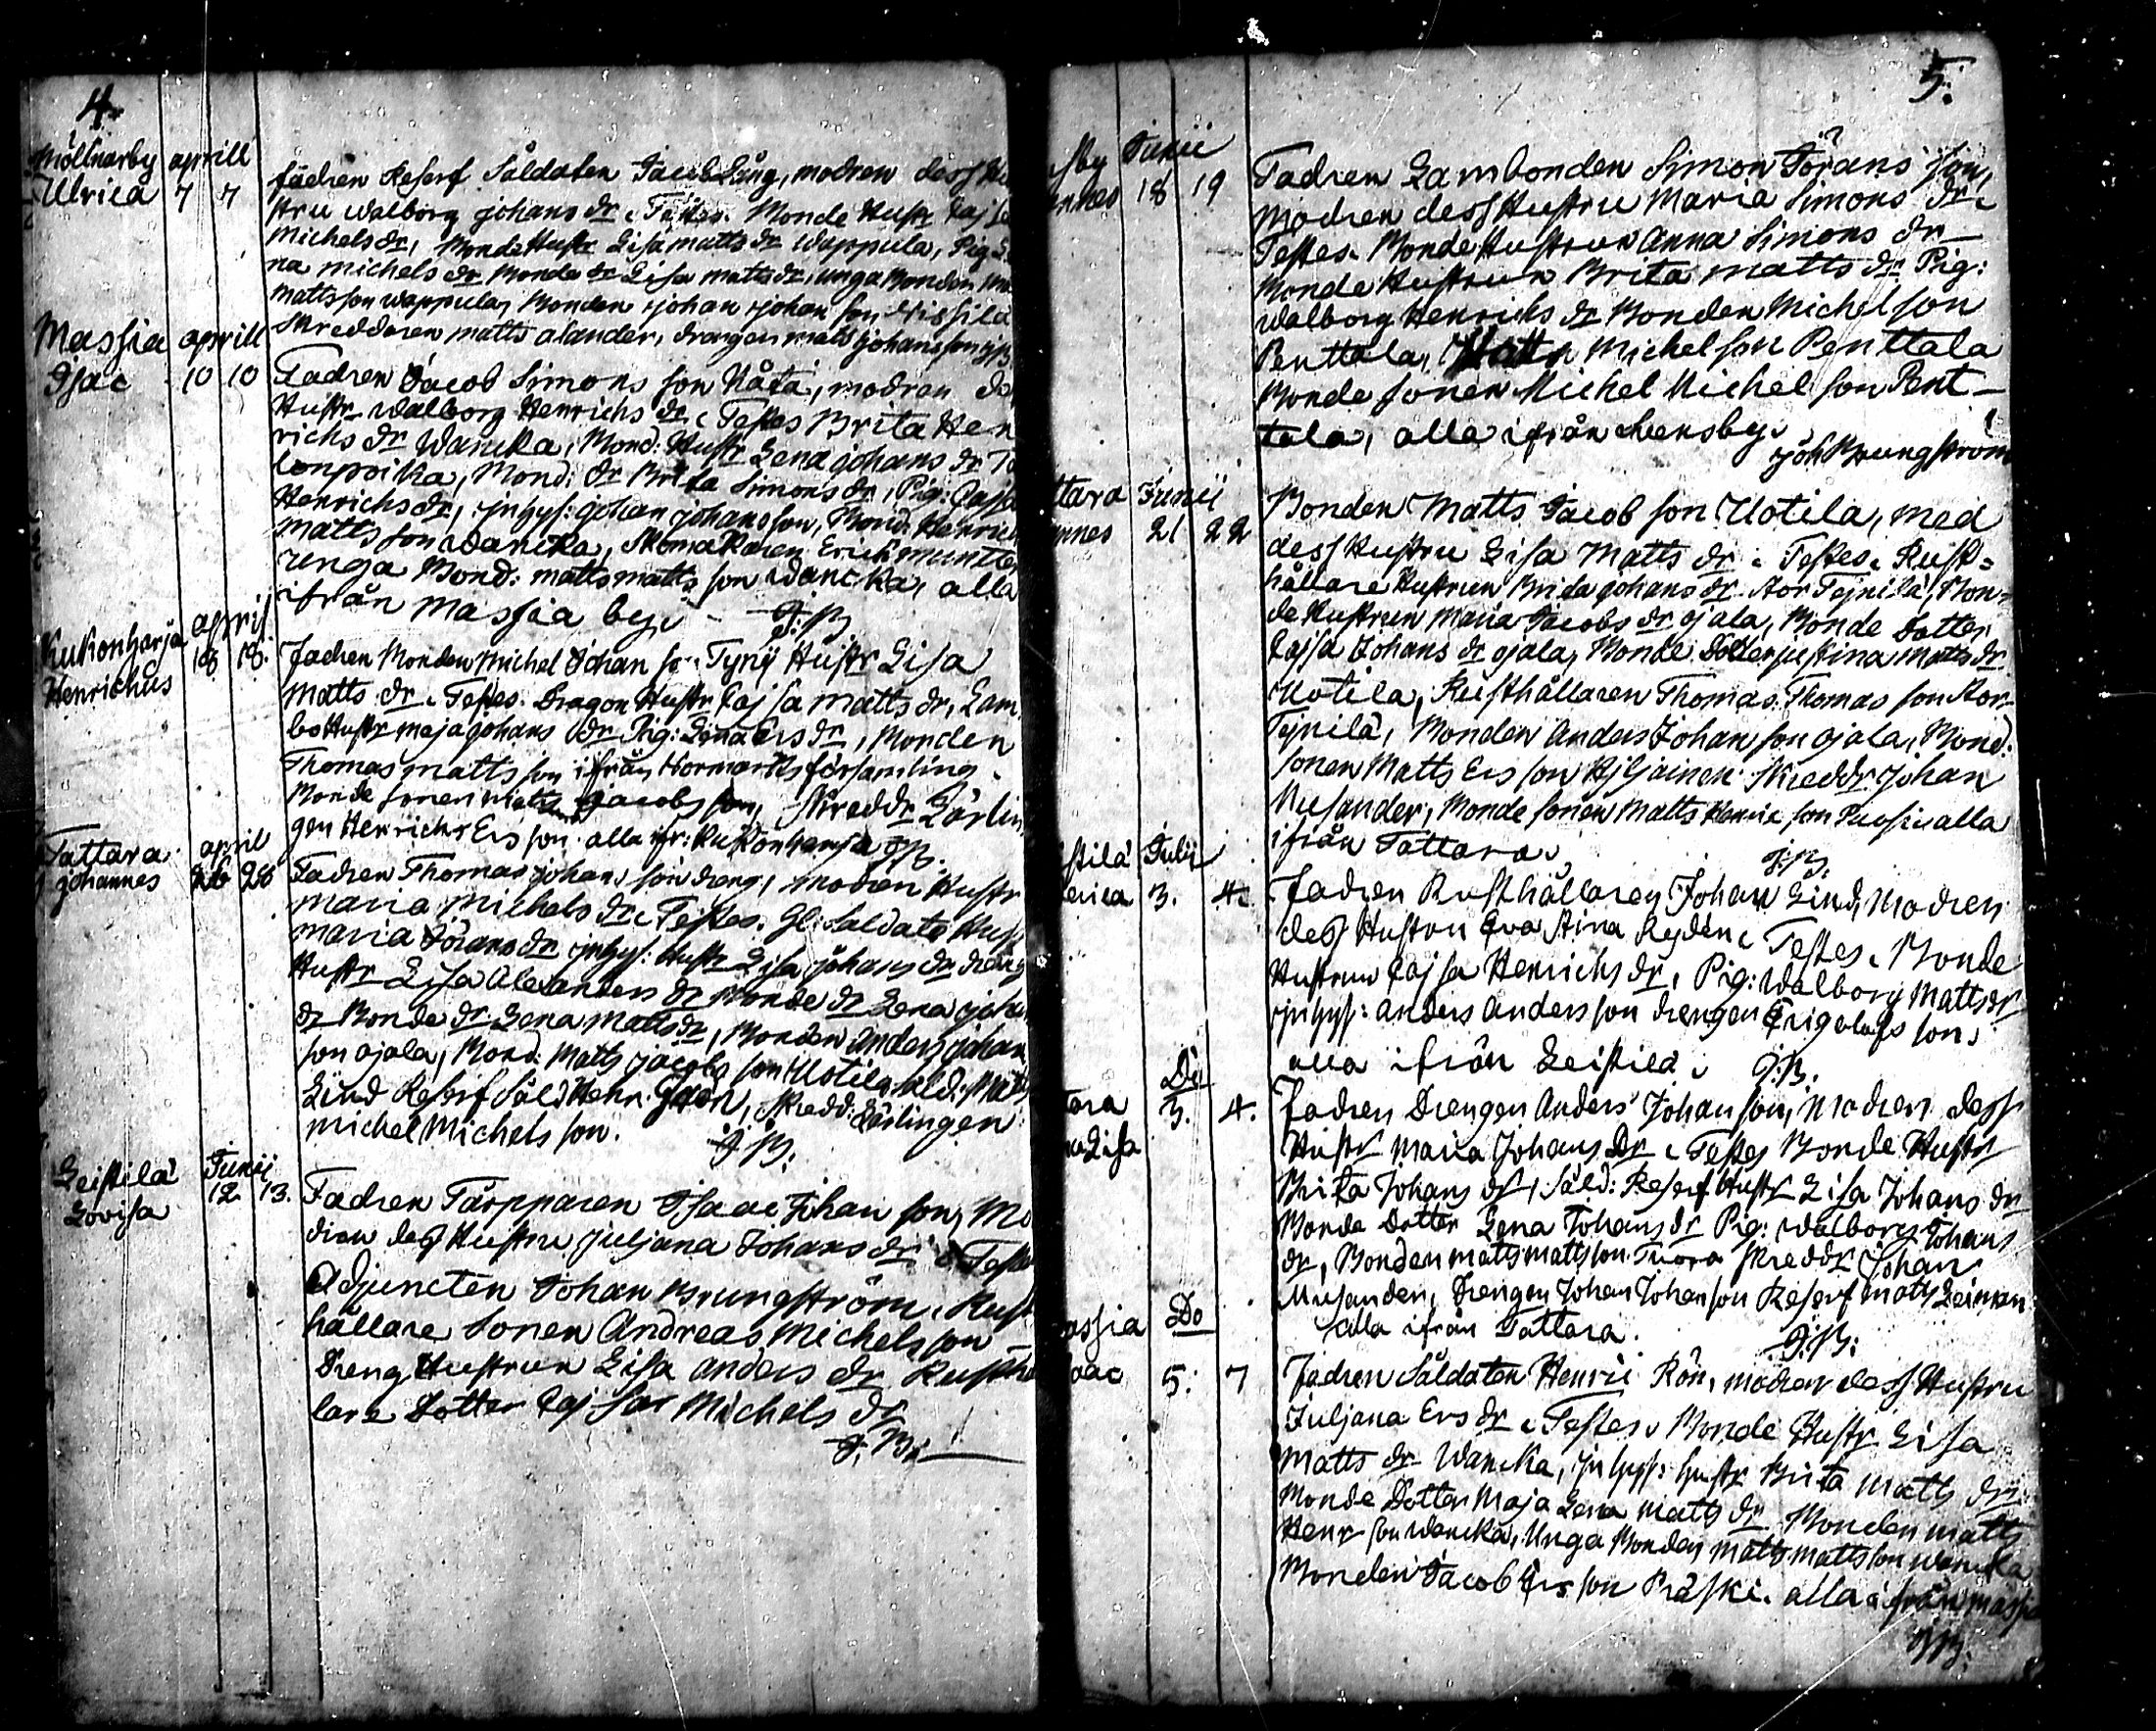 4.
Mollnarby aprill
Ulrica 7 7
fadren Reserf Såldaten Jacob Lång, modren dess Hu
stru Walborg johans dr. Testes. Bonde Hustr Cajsa
Michels dr, Bonde Hustr Lisa matts dr Wappula, Pig
na michels dr Bonde dr Lisa matts dr, unga Bonden
Mattsson Wappula, Bonden johan johan son
Skreddaren matts alander, drengen matts johansson JB
Massia aprill
Isac 10 10
Fadren Jacob Simons son Nåta, modren de
Hustr Walborg Henrichs dr. Testes Brita Hen
richs dr Wancka, Bond: Hustr Lena johans dr
Bond: dr Brita Simons dr, Pig: Cajsa
Henrichs dr, inhys: johan johansson, Bond: Henrich
Matts son Wancka, Skomakaren Erich
unga Bond: matts matts son Wancka, alla
ifrån Massia by. J:B
Kukonharja april
Henrichus 18 18.
Fadren Bonden Michel Johan son Tyrij Hustr Lisa
Matts dr. Testes. Dragon Hustr Cajsa Matts dr, Lam
bo Hustr maja johans dr Pig: Lena Ers dr, Bonden
Thomas matts son ifrån Norrmarks församling.
Bonde sonen matts jacobs son, Skreddr Lärlin
gen Henrichs Ers son. alla ifr: Kukonharja JB.
Tattara april
johannes 26 28
Fadren Thomas johans son dreng, modren Hustr
maria michels dr. Testes. Gl: Saldats Hust
maria Jörans dr inhys: Hustr Lisa johans dr dreng
Hustr Lisa Alexanders dr Bonde dr Lena joha
dr Bonde dr Lena Matts dr, Bonden Anders johan
son ojala, Bond: Matts jacobs son Uotila, Sald: Matts
Lind Reserf Såld Henr: Skredd: Lärlingen
michel Michels son. J:B:
Leistilä Junij
Lovisa 12 13.
Fadren Tårpparen Isaac Johan son, Mo
dren dess Hustru Juljana Johans dr. Teste
Adjuncten Johan Brungström, Rust
hållare Sonen Andreas Michels son
Dreng Hustrun Lisa anders dr Rusthå
lare Dotter Cajsa Michels dr
J. B:
5.
sby Junii
nnes 18 19
Fadren Lambonden Simon Jörans son,
Modren dess Hustru Maria Simons dr.
Testes. Bonde Hustrun Anna Simons dr
Bonde Hustrun Brita matts dr Pig:
Walborg Henrichs dr Bonden Michel son
Penttala, Matts Michel son Penttala
Bonde sonen Michel Michel son Pent-
tala, alla ifrån Lensby.
joh Brungström
ttara Junij
nnes 21 22
Bonden Matts Jacob son Uotila, med
dess Hustru Lisa Matts dr. Testes. Rust-
hållare Hustrun Brita johans dr Stor Tejnilä, Bon-
de Hustrun Maria Jacobs dr ojala, Bonde Dotter
Cajsa Johans dr ojala, Bonde Dotter justina Matts dr
Uotila, Rusthållaren Thomas Thomas son Stor
Tejnilä, Bonden Anders Johan son ojala, Bond:
sonen Matts Ers son Skreddr Johan
Musander, Bonde sonen Matts Henric son alla
ifrån Tattara. J:B.
istilä Julij
lrica 3. 4.
Fadren Rusthållaren Johan Lind, Modren
dess Hustru Eva Stina Rydén. Testes. Bonde
Hustrun Cajsa Henrichs dr, Pig: Walborg Matts dr
inhys: anders anders son drengen Eric olofs son,
alla ifrån Leistilä. J:B:
tara Do
na Lisa 3. 4.
Fadren Drengen Anders Johan son, Modren dess
Hustr Maria Johans Dr. Testes Bonde Hustr
Brita Johans dr, Såld: Reserf Hustr Lisa Johans dr
Bonde Dotter Lena Johans dr Pig: Walborg Johans
dr, Bonden matts matts son Tuora Skreddr Johan
Musander, Drengen Johan Johan son Reserf matts Leinman
alla ifrån Tattara. J:B:
assia Do
saac 5. 7
Fadren Såldaten Henric Rön, modren dess Hustru
Juljana Ers dr. Testes. Bonde Hustr Lisa
Matts dr Wancka, Inhys: Hustr Brita Matts dr
Bonde Dotter Maja Lena matts dr Bonden matts
Henr son Wancka, Unga Bonden Matts Matts son Wancka
Bonden Jacob Ers son Präski. alla ifrån massia
JB: